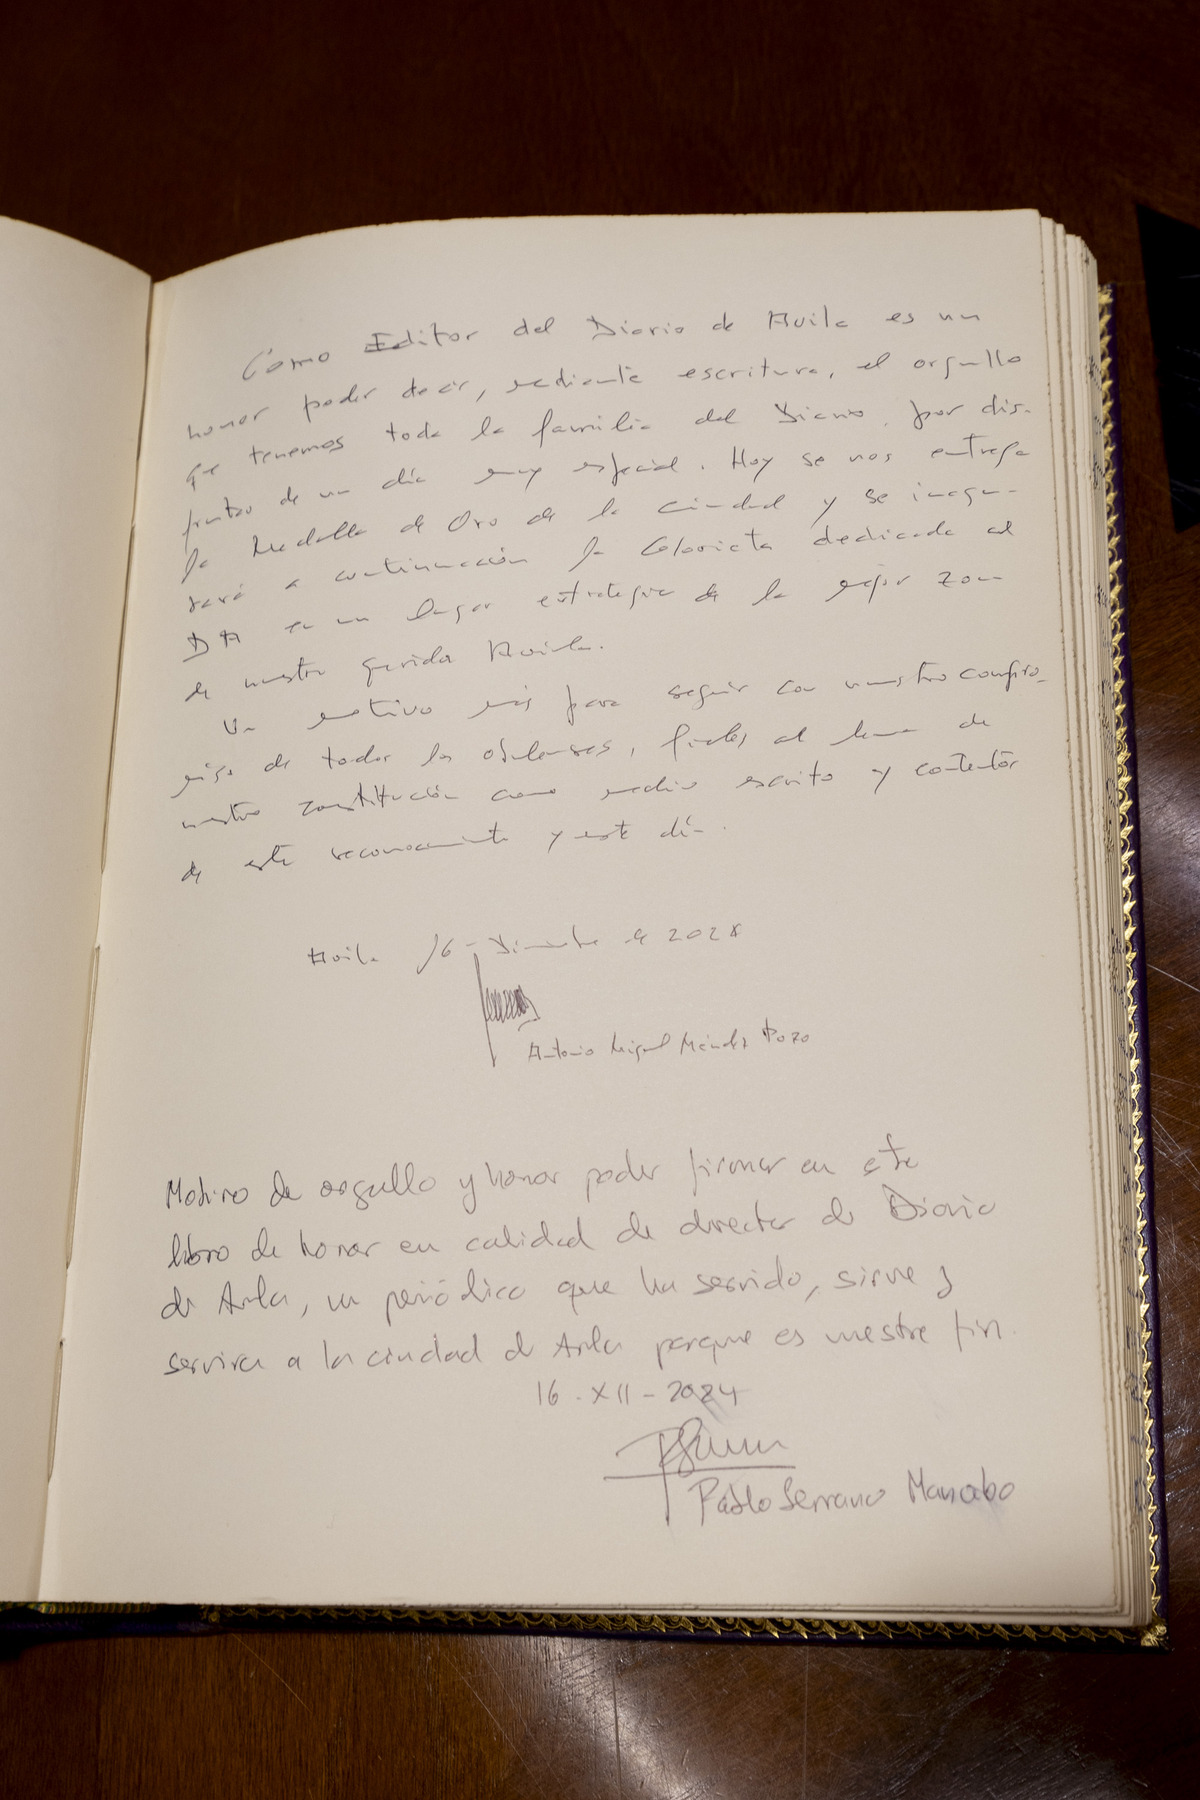 Como Editor del Diario de Avila es un
honor poder decir, mediante escritura, el orgullo
que tenemos toda la familia del Diario, por dis-
frutar de un día muy especial. Hoy se nos entrega
la Medalla de Oro de la Ciudad y se inagu-
rará a continuación la Glorieta dedicada al
DA en un lugar estrategico de la mejor zona
de nuestra querida Avila.
Un motivo más para seguir con nuestro compro-
miso de todos los abulenses, fieles al lema de
nuestra constitución como medio escrito y contentos
de este reconocimiento y este día.
Avila 16 - Diciembre de 2024
Antonio Miguel Méndez Pozo
Motivo de orgullo y honor poder firmar en este
libro de honor en calidad de director de Diario
de Avila, un periódico que ha servido, sirve y
servira a la ciudad de Avila porque es nuestro fin.
16 - XII - 2024
Pablo Serrano